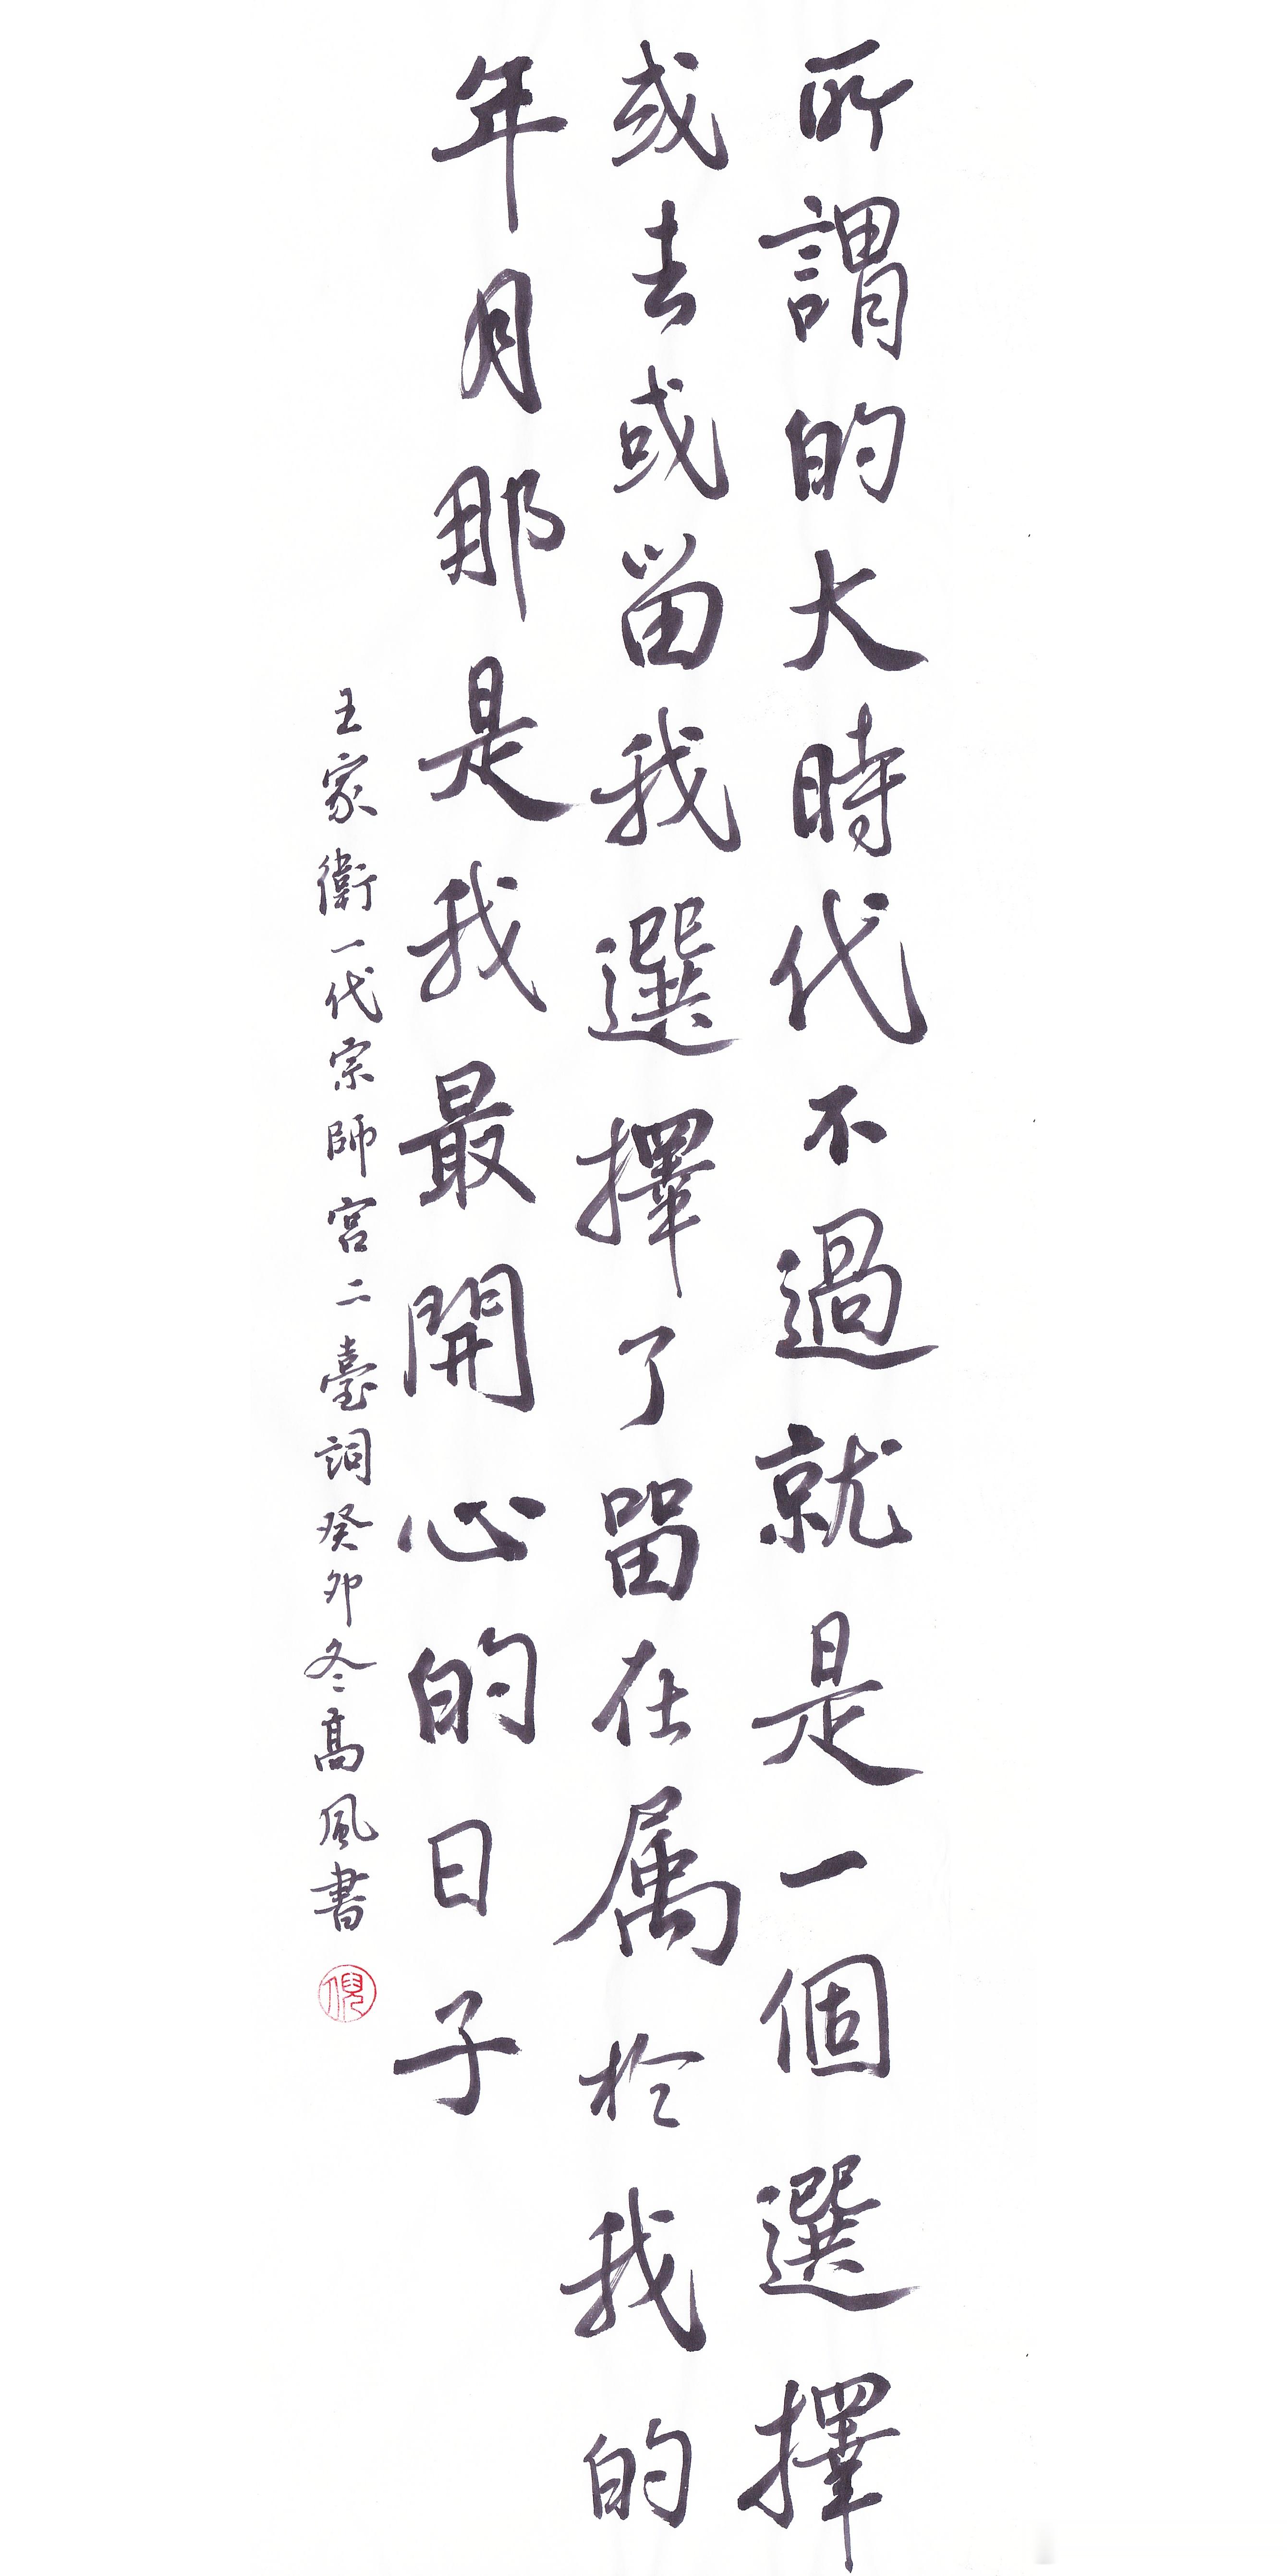 所謂的大時代不過就是一個選擇
或去或留我選擇了留在属於我的
年月那是我最開心的日子
王家衛一代宗師宮二臺詞癸卯冬高風書
倪